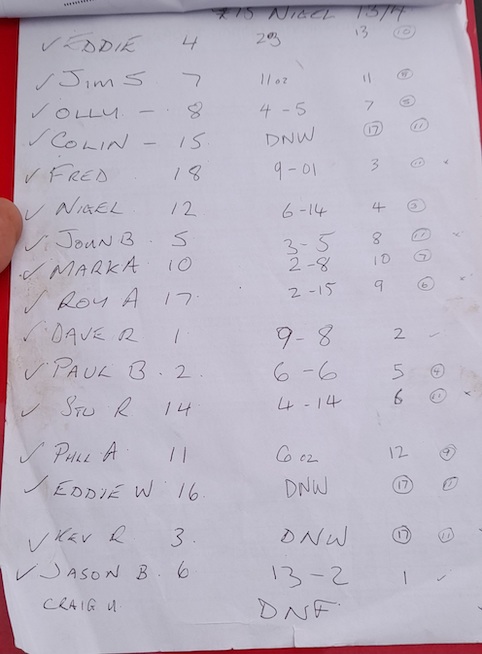 £15 NIGEL 13/4
✓ EDDIE 4 13 10
✓ JIM S 7 11 oz 11 8
✓ OLLY - 8 4-5 7 5
✓ COLIN - 15 DNW 17 11
✓ FRED 18 9-01 3
✓ NIGEL 12 6-14 4 3
✓ JOHN B. 5 3-5 8 11
✓ MARK A 10 2-8 10 7
✓ ROY A 17 2-15 9 6
✓ DAVE R 1 9-8 2 -
✓ PAUL B. 2. 6-6 5 4
✓ STU R 14 4-14 6
✓ PHIL A 11 6 oz 12 9
✓ EDDIE W 16. DNW 17 11
✓ KEV R 3. DNW 17 11
✓ JASON B. 6 13-2 1 ✓
CRAIG U. DNF